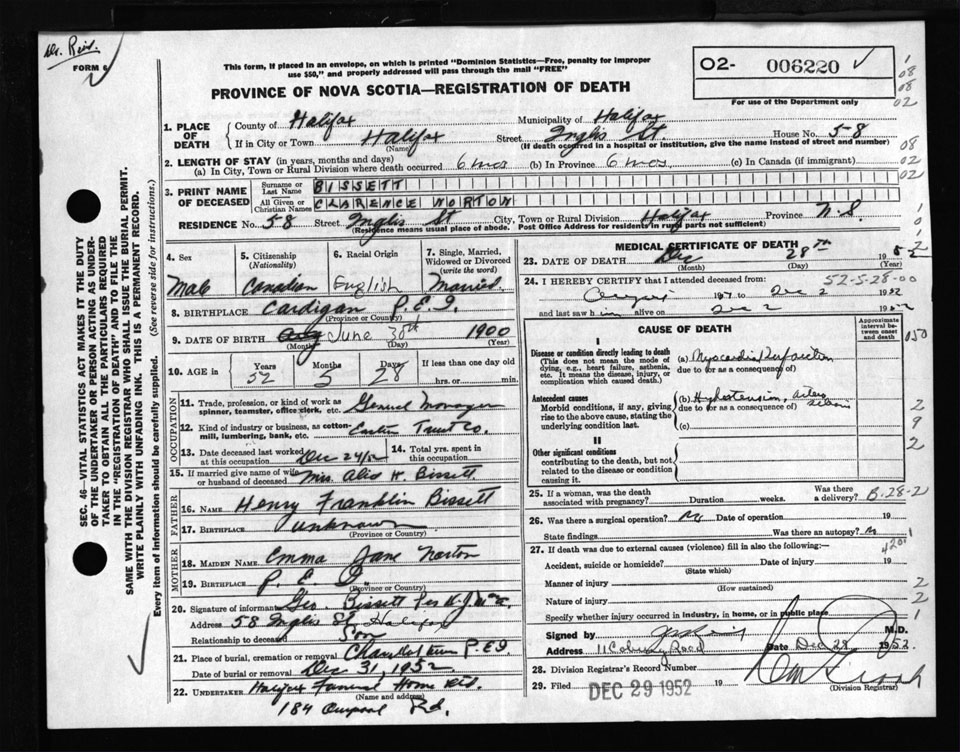 Dr. Reid.
FORM 6
This form, if placed in an envelope, on which is printed "Dominion Statistics—Free, penalty for improper
use $50," and properly addressed will pass through the mail "FREE"
PROVINCE OF NOVA SCOTIA—REGISTRATION OF DEATH
02- 006220
For use of the Department only
1. PLACE OF DEATH County of Halifax Municipality of Halifax
If in City or Town Halifax (Name) Street Inglis St House No. 58
(If death occurred in a hospital or institution, give the name instead of street and number)
2. LENGTH OF STAY (in years, months and days)
(a) In City, Town or Rural Division where death occurred 6 mos (b) In Province 6 mos. (c) In Canada (if immigrant)
3. PRINT NAME OF DECEASED Surname or Last Name BISSETT
All Given or Christian Names CLARENCE NORTON
RESIDENCE No. 58 Street Inglis St City, Town or Rural Division Halifax Province N.S.
(Residence means usual place of abode. Post Office Address for residents in rural parts not sufficient)
4. Sex Male
5. Citizenship (Nationality) Canadian
6. Racial Origin English
7. Single, Married, Widowed or Divorced (write the word) Married
8. BIRTHPLACE Cardigan P.E.I.
(Province or Country)
9. DATE OF BIRTH Aug June 30th 1900
(Month) (Day) (Year)
10. AGE in Years 52 Months 5 Days 28 If less than one day old
hrs. or min.
OCCUPATION
11. Trade, profession, or kind of work as
spinner, teamster, office clerk, etc. General Manager
12. Kind of industry or business, as cotton-
mill, lumbering, bank, etc. Eastern Trust Co.
13. Date deceased last worked at this occupation Dec 24/52
14. Total yrs. spent in this occupation
15. If married give name of wife or husband of deceased Mrs. Alis K. Bissett
FATHER
16. NAME Henry Franklin Bissett
17. BIRTHPLACE unknown
(Province or Country)
MOTHER
18. MAIDEN NAME Emma Jane Norton
19. BIRTHPLACE P.E.I.
(Province or Country)
20. Signature of informant Geo. Bissett Per
Address 58 Inglis St Halifax
Relationship to deceased Son
21. Place of burial, cremation or removal P.E.I
Date of burial or removal Dec 31, 1952
22. UNDERTAKER Halifax Funeral Home
(Name and address)
184 Rd.
MEDICAL CERTIFICATE OF DEATH
23. DATE OF DEATH Dec 28TH 1952
(Month) (Day) (Year)
52-5-28-00
24. I HEREBY CERTIFY that I attended deceased from:
19 to Dec 2 1952
and last saw him alive on Dec 2 1952
CAUSE OF DEATH
Approximate interval between onset and death
I
Disease or condition directly leading to death
(This does not mean the mode of dying, e.g., heart failure, asthenia, etc. It means the disease, injury, or complication which caused death.)
(a) Myocardin Infarction
due to (or as a consequence of)
Antecedent causes
Morbid conditions, if any, giving rise to the above cause, stating the underlying condition last.
(b) Hypertension, arterio
due to (or as a consequence of)
(c)
II
Other significant conditions
contributing to the death, but not related to the disease or condition causing it.
25. If a woman, was the death associated with pregnancy? Duration weeks. Was there a delivery? B-28-2
26. Was there a surgical operation? No Date of operation 19
State findings Was there an autopsy? No
4201
27. If death was due to external causes (violence) fill in also the following:—
Accident, suicide or homicide? Date of injury 19
(State which)
Manner of injury
(How sustained)
Nature of injury
Specify whether injury occurred in industry, in home, or in public place
Signed by M.D.
Address 11 Coburg Road Date Dec 29 1952.
28. Division Registrar's Record Number
29. Filed DEC 29 1952 19
(Division Registrar)
SEC. 46—VITAL STATISTICS ACT MAKES IT THE DUTY
OF THE UNDERTAKER OR PERSON ACTING AS UNDER-
TAKER TO OBTAIN ALL THE PARTICULARS REQUIRED
IN THE "REGISTRATION OF DEATH" AND TO FILE THE
SAME WITH THE DIVISION REGISTRAR WHO SHALL ISSUE THE BURIAL PERMIT.
WRITE PLAINLY WITH UNFADING INK. THIS IS A PERMANENT RECORD.
Every item of information should be carefully supplied. (See reverse side for instructions.)